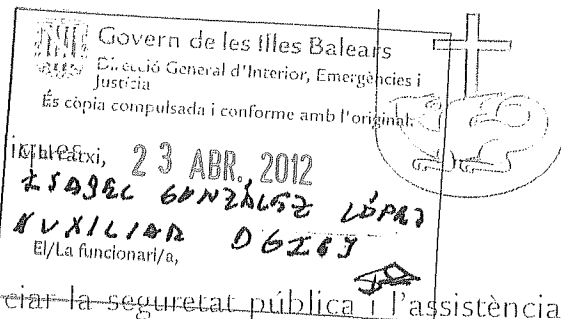 Govern de les Illes Balears
Direcció General d'Interior, Emergències i
Justícia
És còpia compulsada i conforme amb l'original.
Marratxí, 23 ABR. 2012
ISABEL GONZÁLEZ LÓPEZ
AUXILIAR DGIEJ
El/La funcionari/a,
ciar la seguretat pública i l'assistència